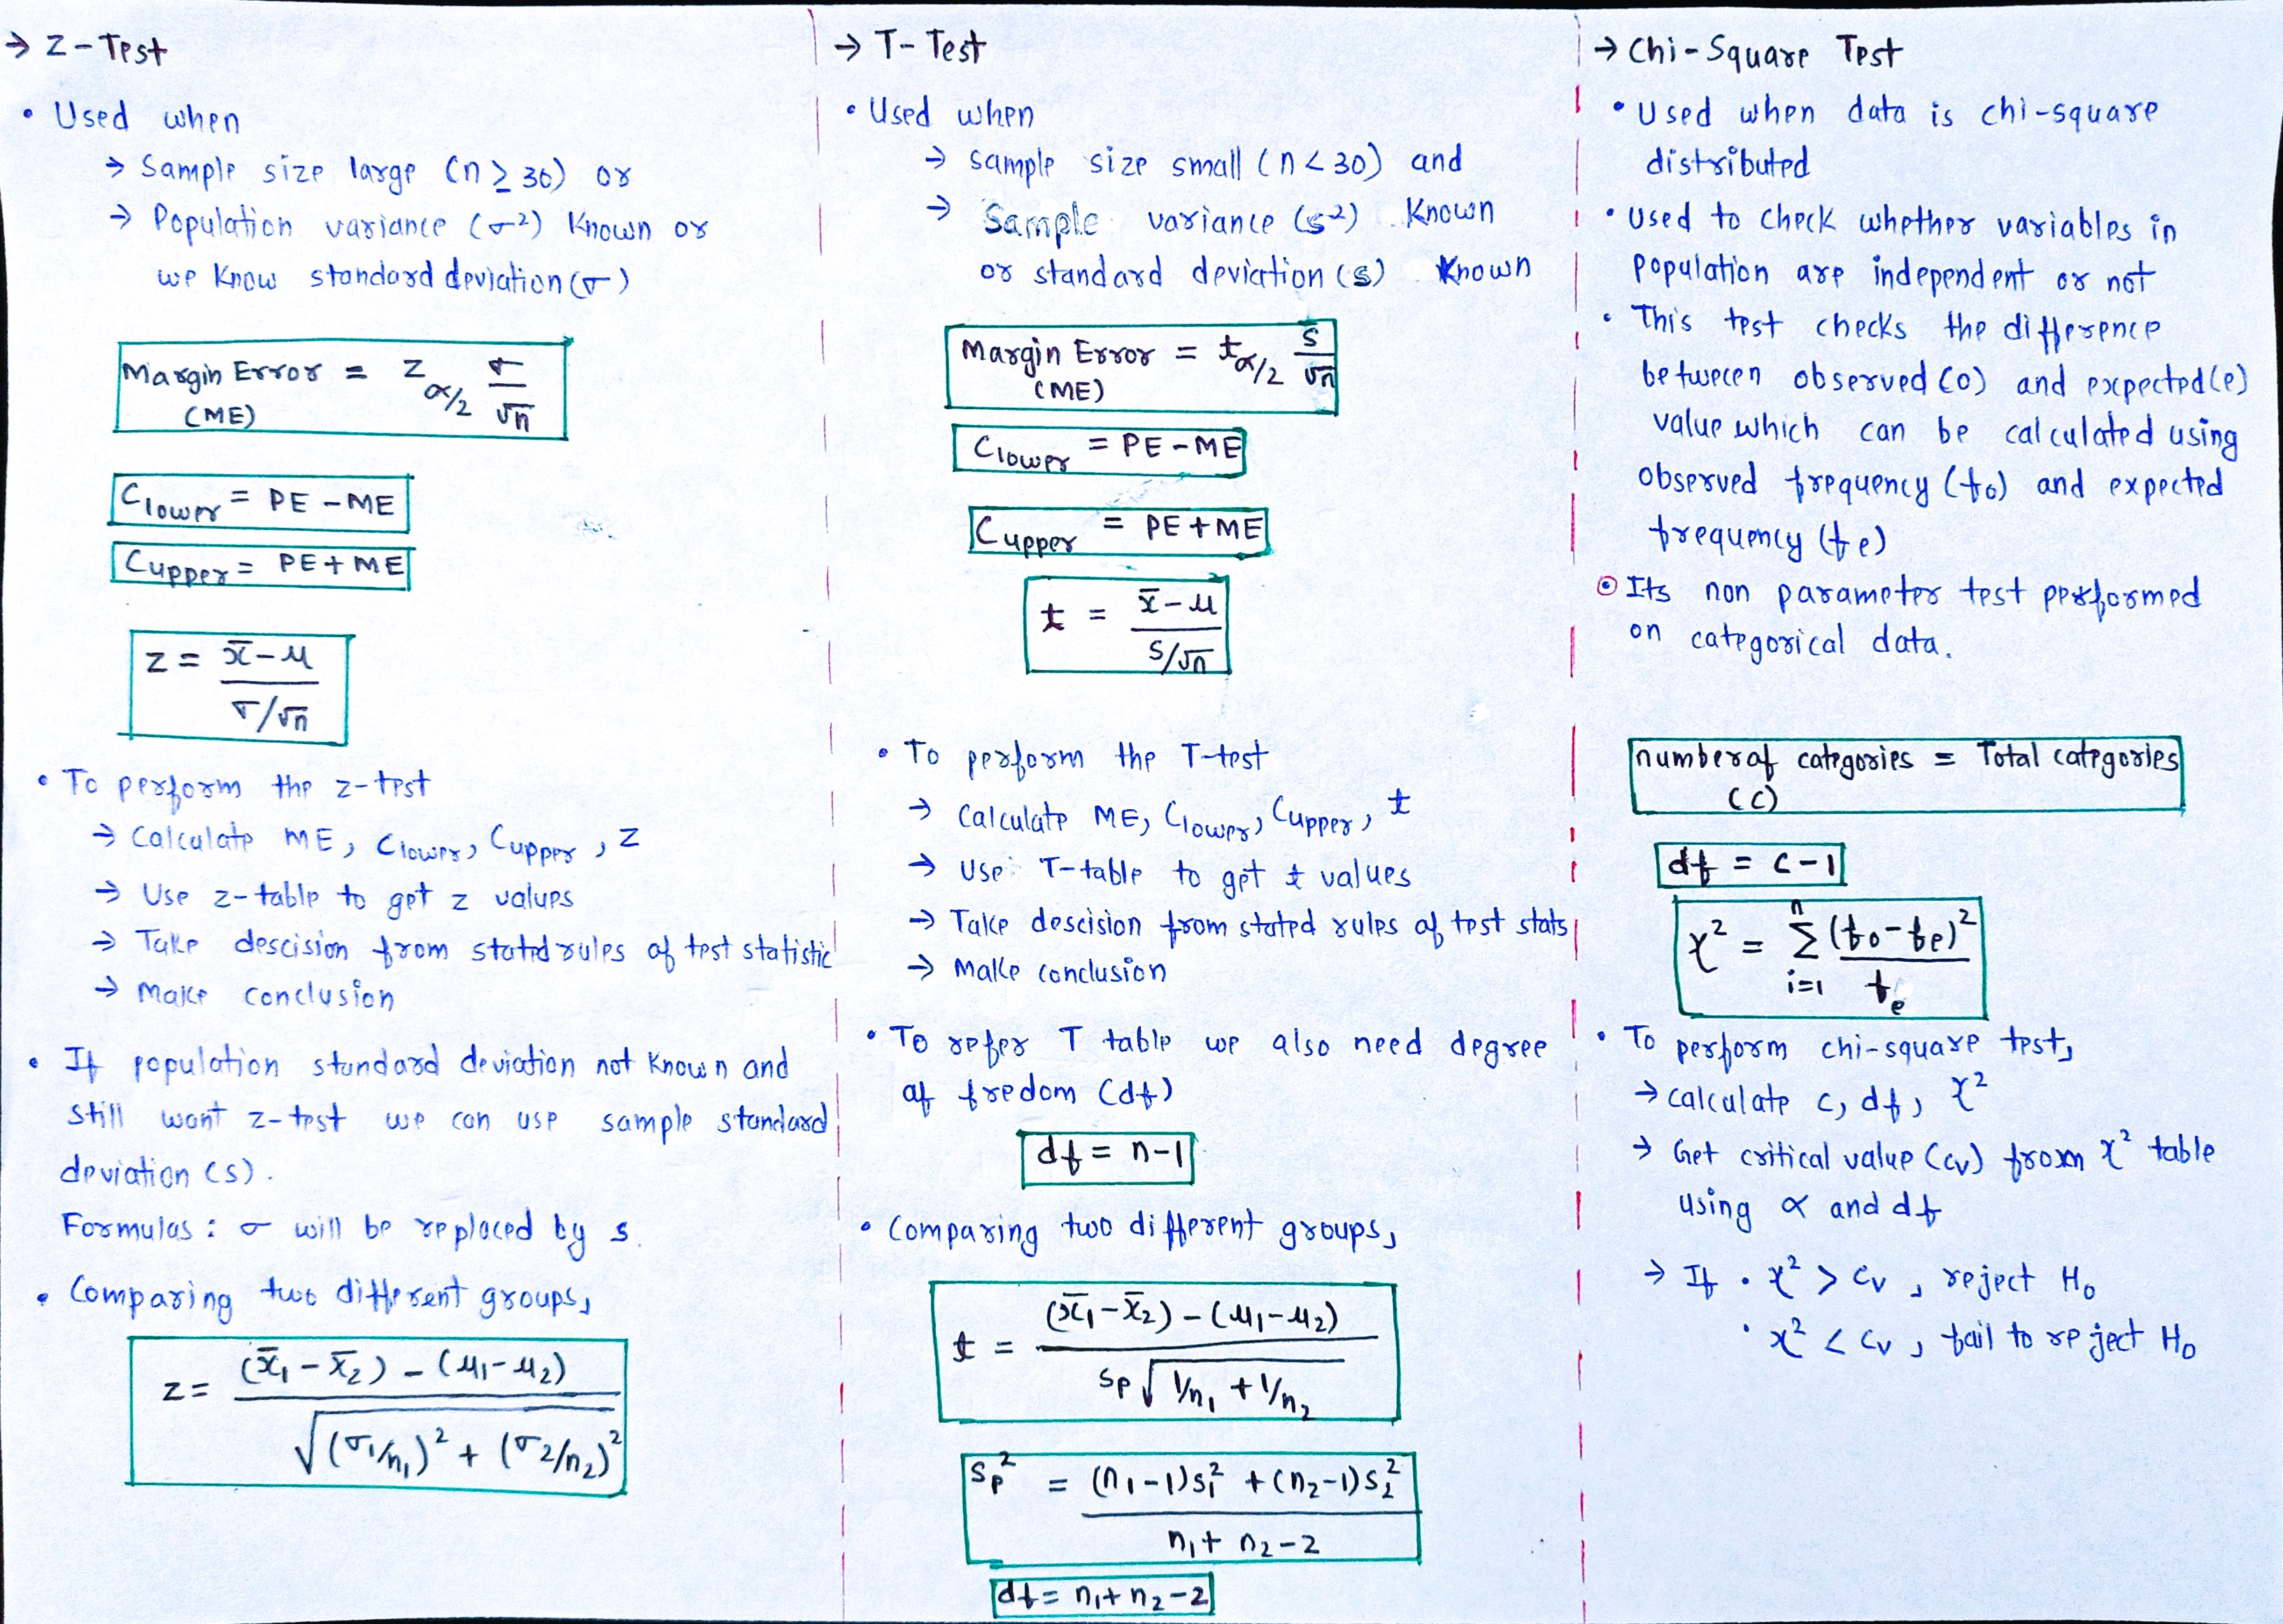 → Z-Test
• Used when
→ Sample size large (n ≥ 30) or
→ Population variance (σ²) Known or
we Know standard deviation (σ)
Margin Error = z α/2 σ/√n
(ME)
Clower = PE - ME
Cupper = PE + ME
z = x̄ - μ / σ/√n
• To perform the z-test
→ Calculate ME, Clower, Cupper, Z
→ Use z-table to get z values
→ Take descision from stated rules of test statistic
→ Make conclusion
• If population standard deviation not Known and
still want z-test we can use sample standard
deviation (s).
Formulas: σ will be replaced by s.
• Comparing two different groups,
z = (x̄₁ - x̄₂) - (μ₁ - μ₂) / √(σ₁/n₁)² + (σ₂/n₂)²
→ T-Test
• Used when
→ sample size small (n < 30) and
→ Sample variance (s²) Known
or standard deviation (s) Known
Margin Error = t α/2 s/√n
(ME)
Clower = PE - ME
Cupper = PE + ME
t = x̄ - μ / s/√n
• To perform the T-test
→ Calculate ME, Clower, Cupper, t
→ Use T-table to get t values
→ Take descision from stated rules of test stats
→ Make conclusion
• To refer T table we also need degree
of fredom (df)
df = n-1
• Comparing two different groups,
t = (x̄₁ - x̄₂) - (μ₁ - μ₂) / sp √1/n₁ + 1/n₂
sp² = (n₁-1)s₁² + (n₂-1)s₂² / n₁ + n₂ - 2
df = n₁ + n₂ - 2
→ Chi-Square Test
• Used when data is chi-square
distributed
• Used to check whether variables in
population are independent or not
• This test checks the difference
between observed (o) and expected (e)
value which can be calculated using
observed frequency (fo) and expected
frequency (fe)
⊙ Its non parameter test performed
on categorical data.
number of categories = Total categories
(C)
df = c-1
χ² = Σ (fo - fe)² / fe
n
i=1
• To perform chi-square test,
→ calculate c, df, χ²
→ Get critical value (cv) from χ² table
using α and df
→ If • χ² > cv, reject H₀
• χ² < cv, fail to reject H₀